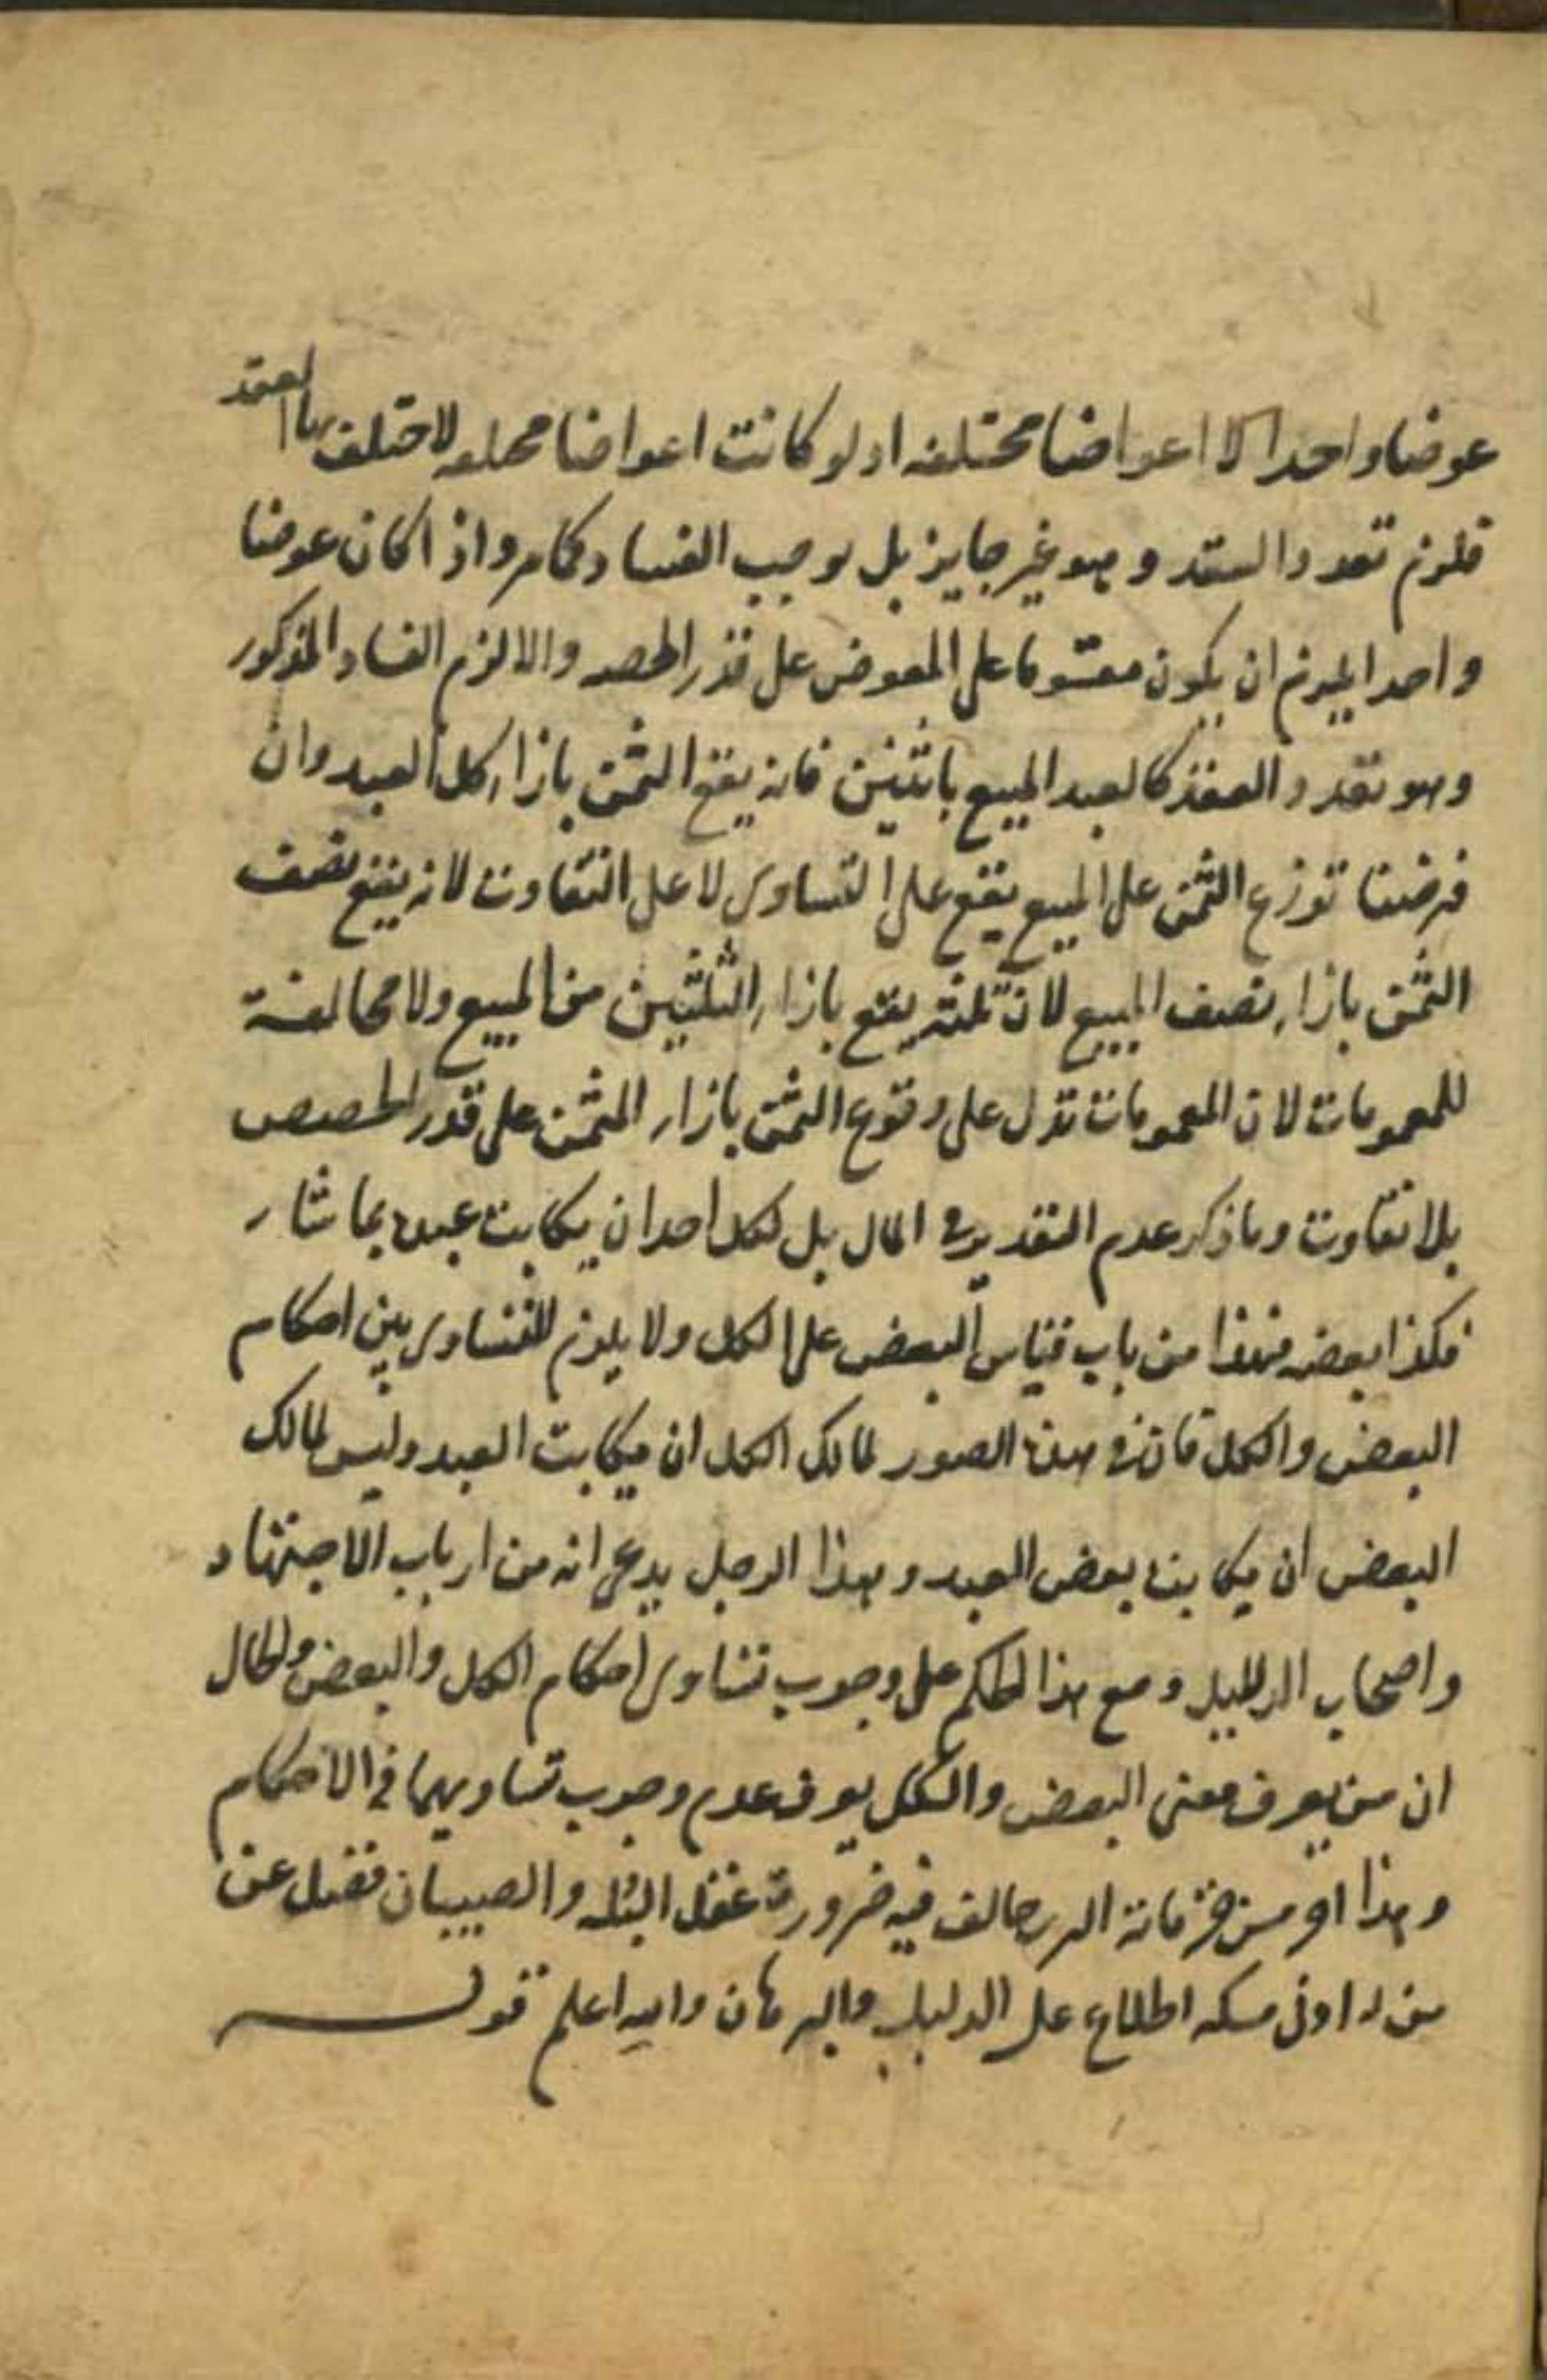 عوضا واحدا لا اعواضا مختلفه اذ لو كانت اعواضا مختلفه لاختلف بها العقد
فلزم تعدد العقد وهو غير جايز بل يوجب الفساد كما مر واذا كان عوضا
واحدا يلزم ان يكون مقسوما على المعوض على قدر الحصه والا لزم الفساد المذكور
وهو تعدد العقد كالعبد المبيع باثنين فانه يقع الثمن بازاء كل العبد وان
فرضنا توزع الثمن على المبيع يقع على التساوى لا على التفاوت لانه يقع نصف
الثمن بازاء نصف المبيع لان ثلثه يقع بازاء الثلثين من المبيع ولا مخالفة
للعمومات لان العمومات تدل على وقوع الثمن بازاء المثمن على قدر الحصص
بلا تفاوت وما ذكر عدم التقدير في المال بل لكل احد ان يكاتب عبده بما شاء
فكذا بعضه فهذا من باب قياس البعض على الكل ولا يلزم التساوى بين احكام
البعض والكل فان في هذه الصور لمالك الكل ان يكاتب العبد وليس لمالك
البعض ان يكاتب بعض العبد وهذا الرجل يدعى انه من ارباب الاجتهاد
واصحاب الدليل ومع هذا الحكم على وجوب تساوى احكام الكل والبعض والحال
ان من يعرف معنى البعض والكل يعرف عدم وجوب تساويهما في الاحكام
وهذا اخر من خزفاته الذى خالف فيه ضرورة عقل البله والصبيان فضل عن
من له ادنى مسكه اطلاع على الدليل والبرهان والله اعلم قوله